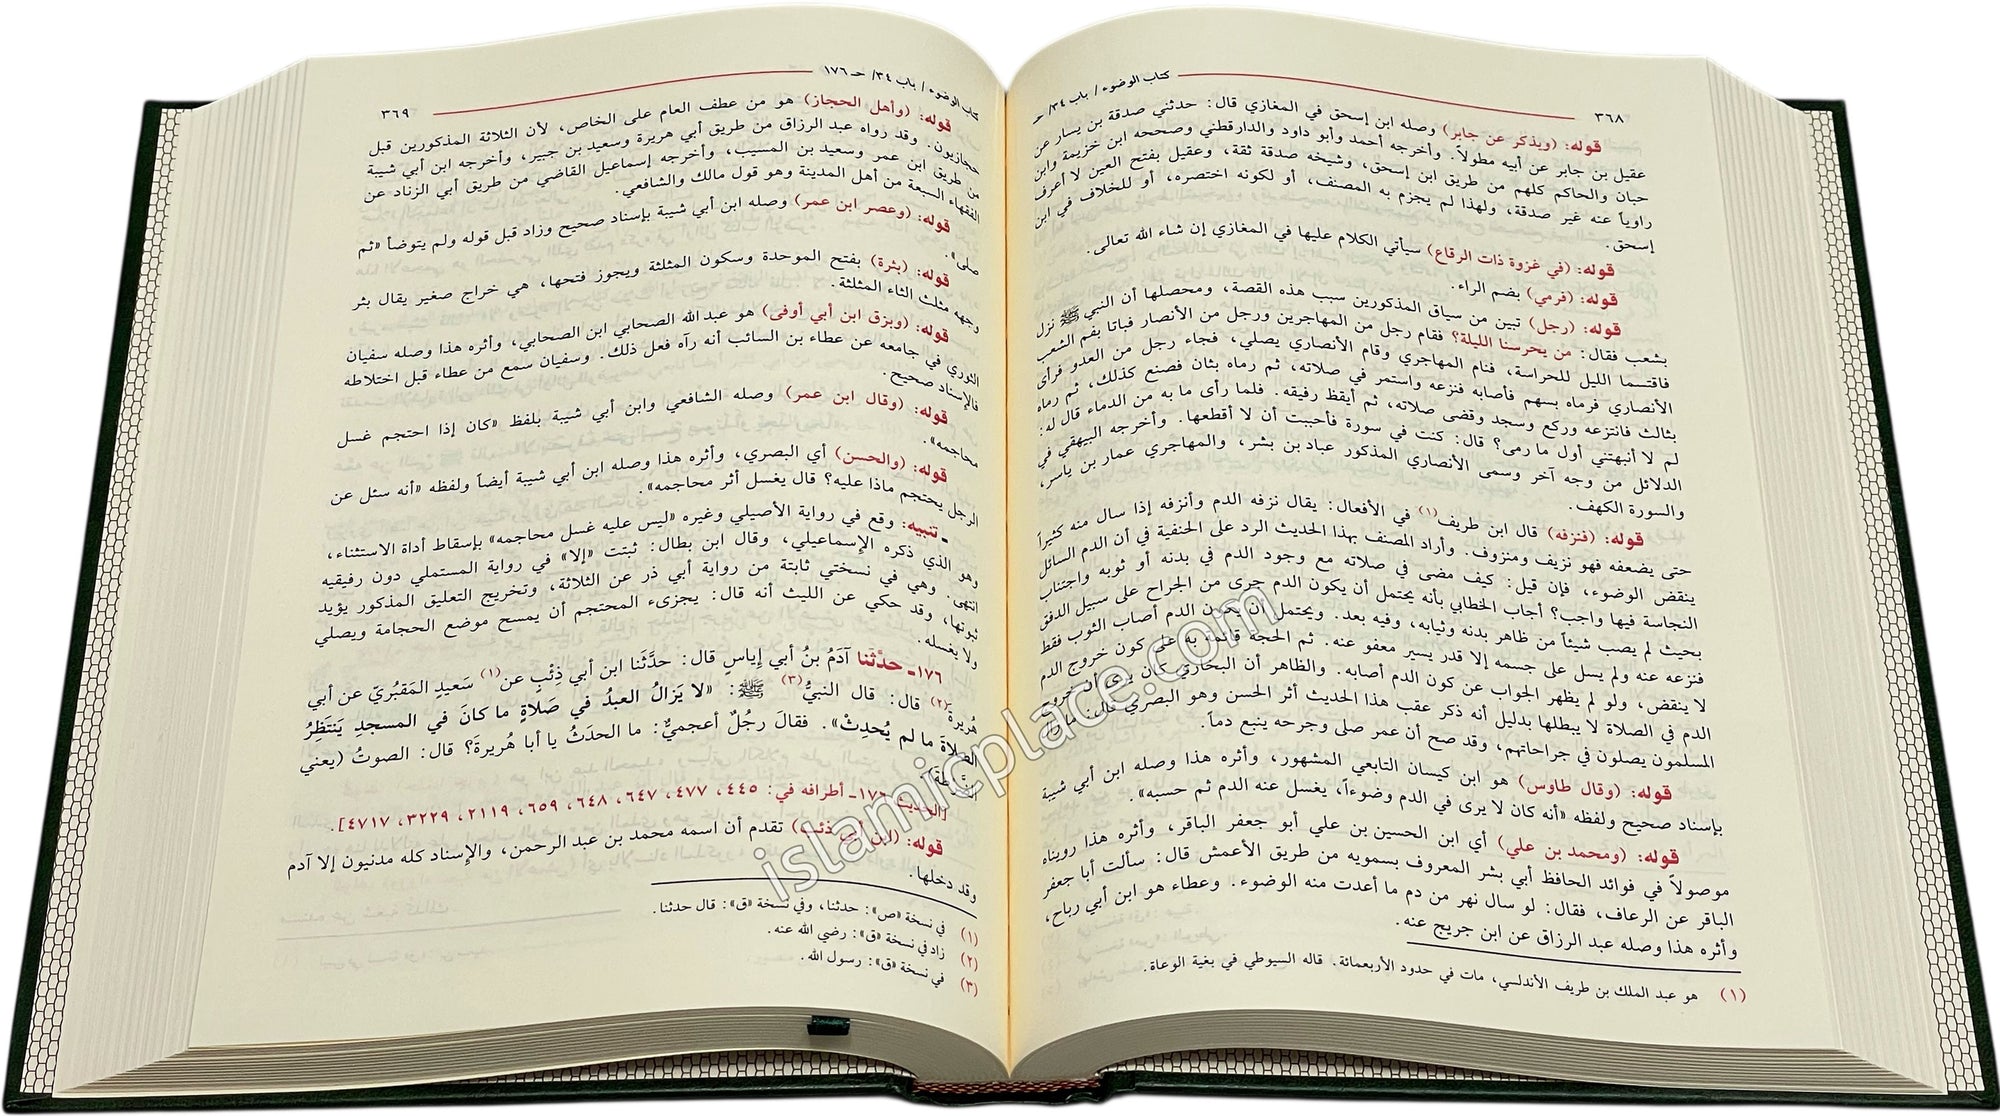 كتاب الوضوء / باب ٣٤/ حـ
٣٦٨
قوله: (ويذكر عن جابر) وصله ابن إسحق في المغازي قال: حدثني صدقة بن يسار عن
عقيل بن جابر عن أبيه مطولاً. وأخرجه أحمد وأبو داود والدارقطني وصححه ابن خزيمة وابن
حبان والحاكم كلهم من طريق ابن إسحق، وشيخه صدقة ثقة، وعقيل بفتح العين لا أعرف
راوياً عنه غير صدقة، ولهذا لم يجزم به المصنف، أو لكونه اختصره، أو للخلاف في ابن
إسحق.
قوله: (في غزوة ذات الرقاع) سيأتي الكلام عليها في المغازي إن شاء الله تعالى.
قوله: (فرمي) بضم الراء.
قوله: (رجل) تبين من سياق المذكورين سبب هذه القصة، ومحصلها أن النبي ﷺ نزل
بشعب فقال: من يحرسنا الليلة؟ فقام رجل من المهاجرين ورجل من الأنصار فباتا بفم الشعب
فاقتسما الليل للحراسة، فنام المهاجري وقام الأنصاري يصلي، فجاء رجل من العدو فرأى
الأنصاري فرماه بسهم فأصابه فنزعه واستمر في صلاته، ثم رماه بثان فصنع كذلك، ثم رماه
بثالث فانتزعه وركع وسجد وقضى صلاته، ثم أيقظ رفيقه. فلما رأى ما به من الدماء قال له:
لم لا أنبهتني أول ما رمى؟ قال: كنت في سورة فأحببت أن لا أقطعها. وأخرجه البيهقي في
الدلائل من وجه آخر وسمى الأنصاري المذكور عباد بن بشر، والمهاجري عمار بن ياسر،
والسورة الكهف.
قوله: (فنزفه) قال ابن طريف(١) في الأفعال: يقال نزفه الدم وأنزفه إذا سال منه كثيراً
حتى يضعفه فهو نزيف ومنزوف. وأراد المصنف بهذا الحديث الرد على الحنفية في أن الدم السائل
ينقض الوضوء، فإن قيل: كيف مضى في صلاته مع وجود الدم في بدنه أو ثوبه واجتناب
النجاسة فيها واجب؟ أجاب الخطابي بأنه يحتمل أن يكون الدم جرى من الجراح على سبيل الدفق
بحيث لم يصب شيئاً من ظاهر بدنه وثيابه، وفيه بعد. ويحتمل أن يكون الدم أصاب الثوب فقط
فنزعه عنه ولم يسل على جسمه إلا قدر يسير معفو عنه. ثم الحجة قائمة به على كون خروج الدم
لا ينقض، ولو لم يظهر الجواب عن كون الدم أصابه. والظاهر أن البخاري كان يرى أن خروج
الدم في الصلاة لا يبطلها بدليل أنه ذكر عقب هذا الحديث أثر الحسن وهو البصري قال: ما زال
المسلمون يصلون في جراحاتهم، وقد صح أن عمر صلى وجرحه ينبع دماً.
قوله: (وقال طاوس) هو ابن كيسان التابعي المشهور، وأثره هذا وصله ابن أبي شيبة
بإسناد صحيح ولفظه «أنه كان لا يرى في الدم وضوءاً، يغسل عنه الدم ثم حسبه».
قوله: (ومحمد بن علي) أي ابن الحسين بن علي أبو جعفر الباقر، وأثره هذا رويناه
موصولاً في فوائد الحافظ أبي بشر المعروف بسمويه من طريق الأعمش قال: سألت أبا جعفر
الباقر عن الرعاف، فقال: لو سال نهر من دم ما أعدت منه الوضوء. وعطاء هو ابن أبي رباح،
وأثره هذا وصله عبد الرزاق عن ابن جريج عنه.
(١) هو عبد الملك بن طريف الأندلسي، مات في حدود الأربعمائة. قاله السيوطي في بغية الوعاة.
كتاب الوضوء / باب ٣٤/ حـ ١٧٦
٣٦٩
قوله: (وأهل الحجاز) هو من عطف العام على الخاص، لأن الثلاثة المذكورين قبل
حجازيون. وقد رواه عبد الرزاق من طريق أبي هريرة وسعيد بن جبير، وأخرجه ابن أبي شيبة
من طريق ابن عمر وسعيد بن المسيب، وأخرجه إسماعيل القاضي من طريق أبي الزناد عن
الفقهاء السبعة من أهل المدينة وهو قول مالك والشافعي.
قوله: (وعصر ابن عمر) وصله ابن أبي شيبة بإسناد صحيح وزاد قبل قوله ولم يتوضأ «ثم
صلى».
قوله: (بثرة) بفتح الموحدة وسكون المثلثة ويجوز فتحها، هي خراج صغير يقال بثر
وجهه مثلث الثاء المثلثة.
قوله: (وبزق ابن أبي أوفى) هو عبد الله الصحابي ابن الصحابي، وأثره هذا وصله سفيان
الثوري في جامعه عن عطاء بن السائب أنه رآه فعل ذلك. وسفيان سمع من عطاء قبل اختلاطه
فالإسناد صحيح.
قوله: (وقال ابن عمر) وصله الشافعي وابن أبي شيبة بلفظ «كان إذا احتجم غسل
محاجمه».
قوله: (والحسن) أي البصري، وأثره هذا وصله ابن أبي شيبة أيضاً ولفظه «أنه سئل عن
الرجل يحتجم ماذا عليه؟ قال يغسل أثر محاجمه».
ـ تنبيه: وقع في رواية الأصيلي وغيره «ليس عليه غسل محاجمه» بإسقاط أداة الاستثناء،
وهو الذي ذكره الإسماعيلي، وقال ابن بطال: ثبتت «إلا» في رواية المستملي دون رفيقيه
انتهى. وهي في نسختي ثابتة من رواية أبي ذر عن الثلاثة، وتخريج التعليق المذكور يؤيد
ثبوتها، وقد حكي عن الليث أنه قال: يجزىء المحتجم أن يمسح موضع الحجامة ويصلي
ولا يغسله.
١٧٦ـ حدَّثنا آدَمُ بنُ أبي إياسٍ قال: حدَّثَنا ابن أبي ذِئْبٍ عن(١) سَعيدٍ المَقبُريِّ عن أبي
هُريرةَ(٢) قال: قال النبيُّ(٣) ﷺ: «لا يَزالُ العبدُ في صَلاةٍ ما كانَ في المسجدِ يَنتَظِرُ
الصلاةَ ما لم يُحدِثْ». فقالَ رجُلٌ أعجميٌّ: ما الحدَثُ يا أبا هُريرةَ؟ قال: الصوتُ (يعني
الضَّرطةَ)
[الحديث ١٧٦ـ أطرافه في: ٤٤٥، ٤٧٧، ٦٤٧، ٦٤٨، ٦٥٩، ٢١١٩، ٣٢٢٩، ٤٧١٧].
قوله: (ابن أبي ذئب) تقدم أن اسمه محمد بن عبد الرحمن، والإسناد كله مدنيون إلا آدم
وقد دخلها.
(١) في نسخة «ص»: حدثنا، وفي نسخة «ق»: قال حدثنا.
(٢) زاد في نسخة «ق»: رضي الله عنه.
(٣) في نسخة «ق»: رسول الله.
islamicplace.com